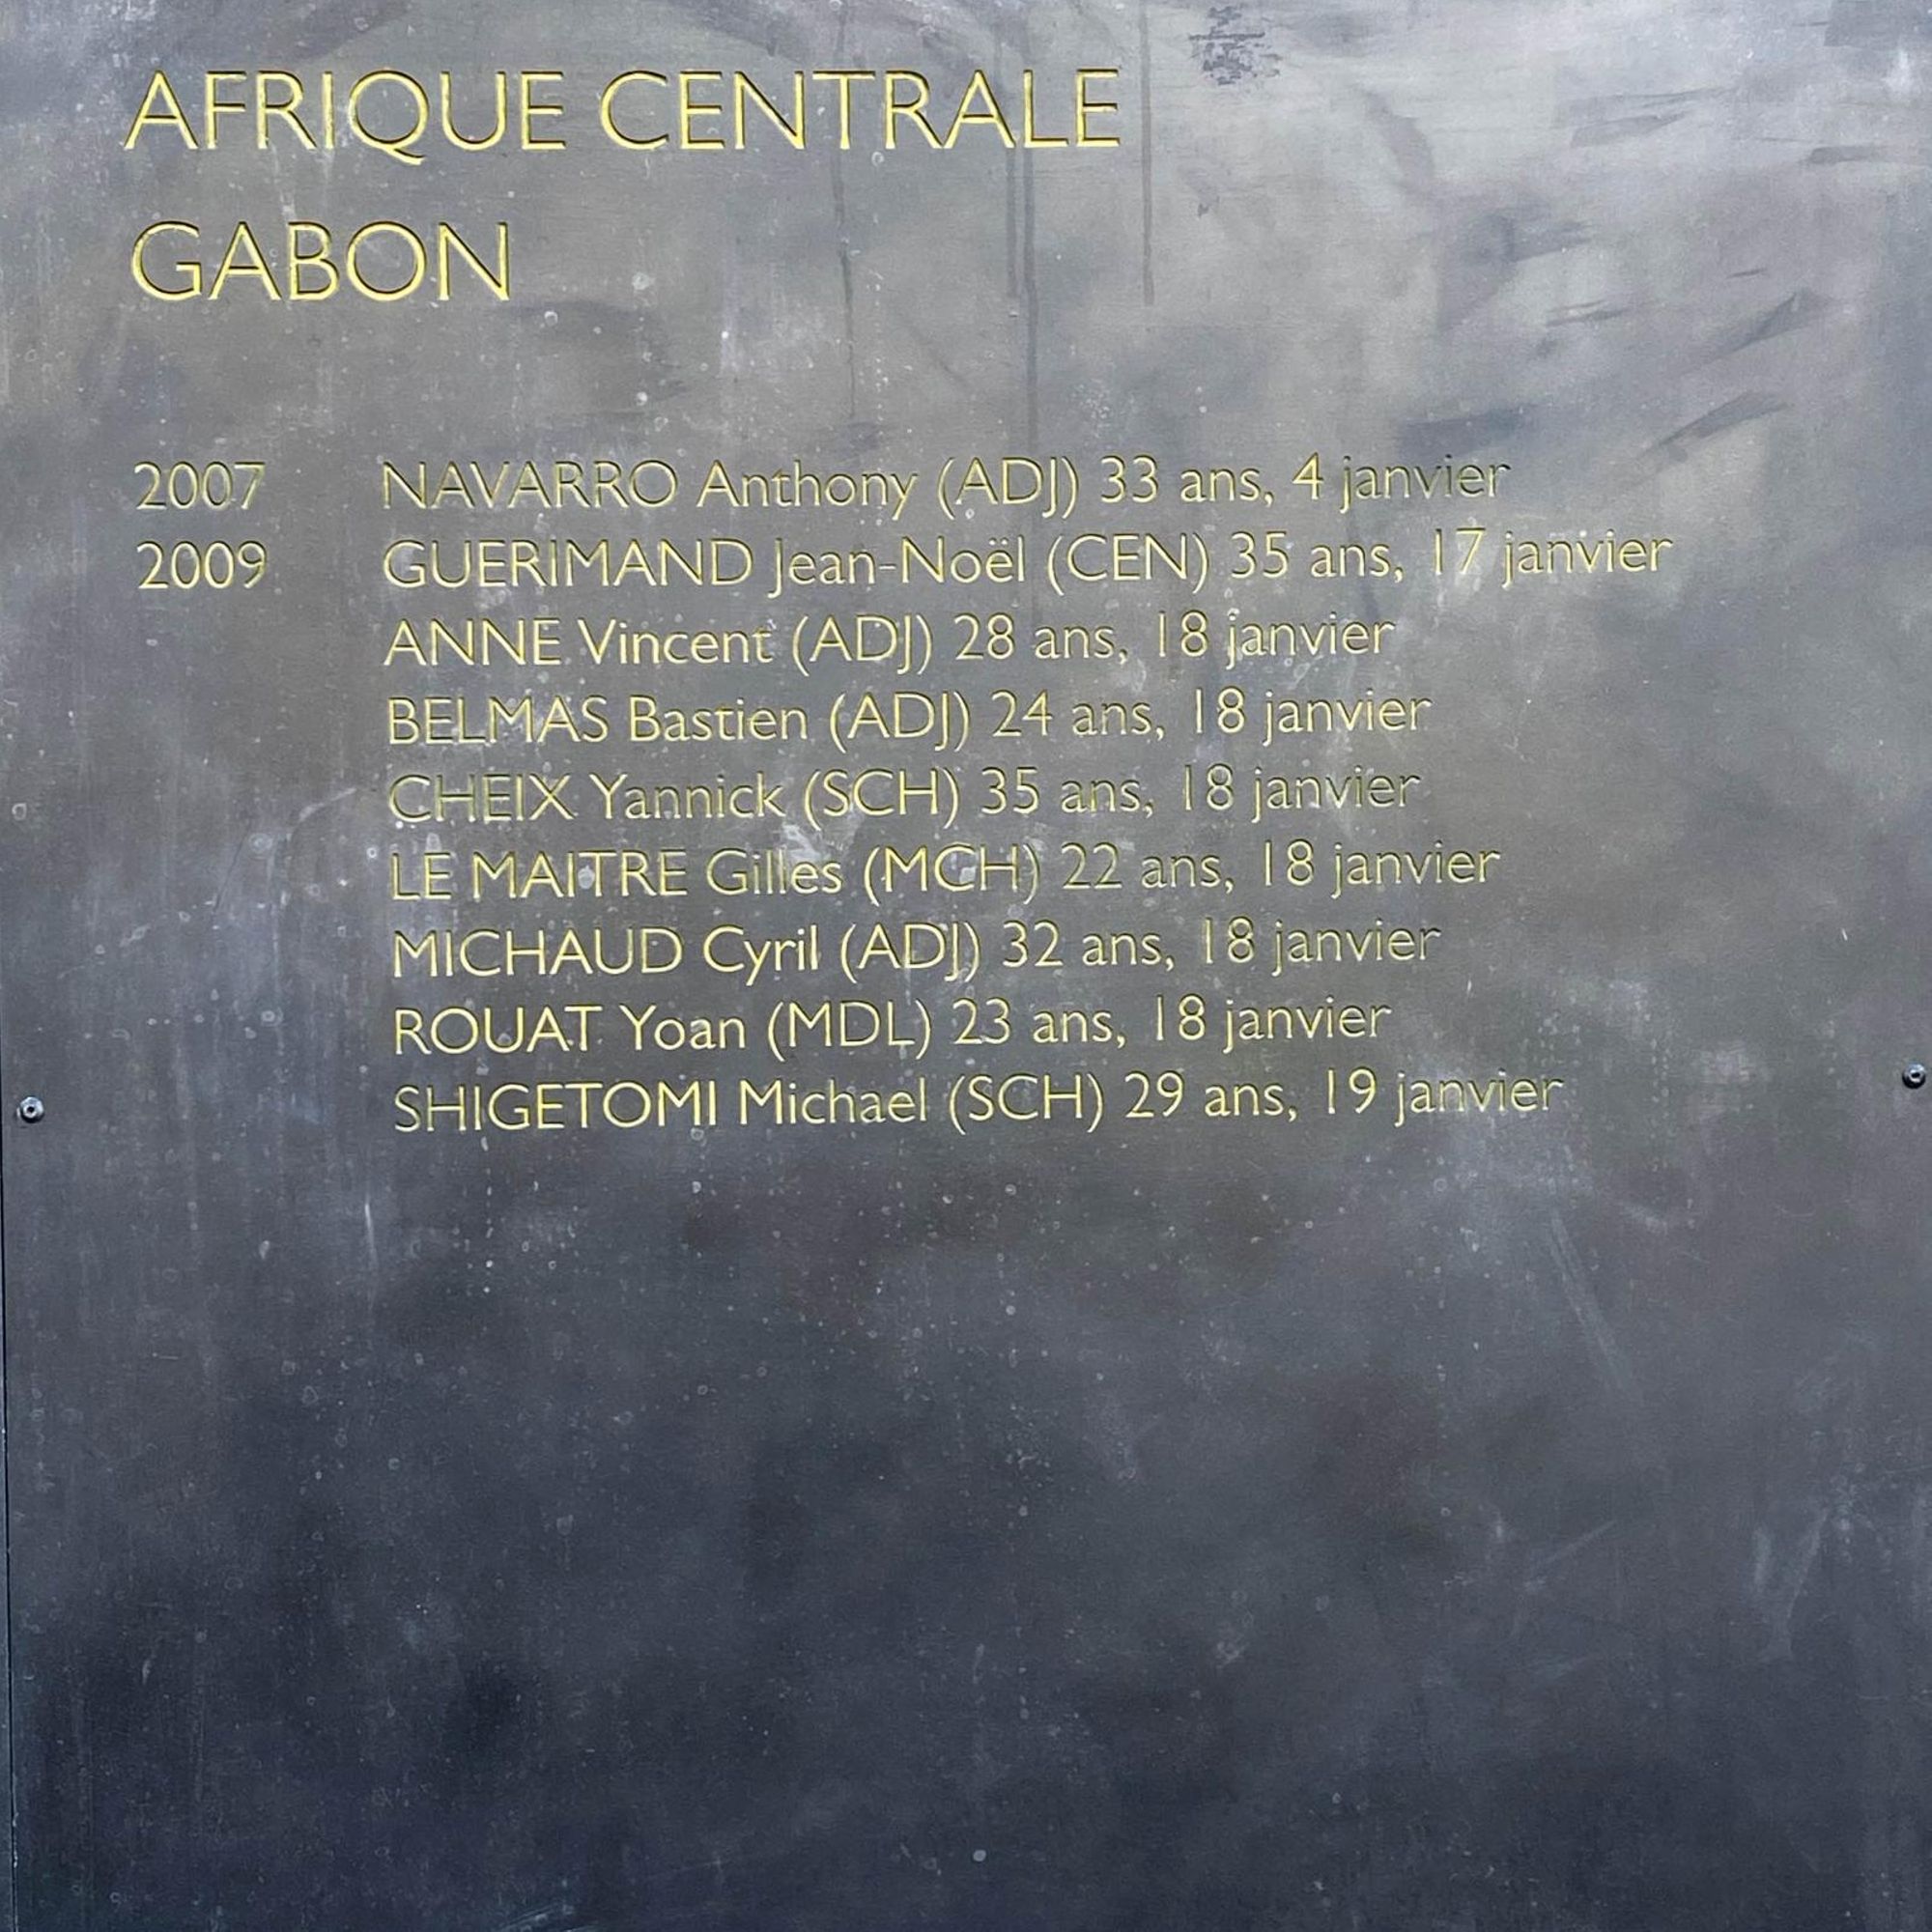 AFRIQUE CENTRALE
GABON
2007 NAVARRO Anthony (ADJ) 33 ans, 4 janvier
2009 GUERIMAND Jean-Noël (CEN) 35 ans, 17 janvier
ANNE Vincent (ADJ) 28 ans, 18 janvier
BELMAS Bastien (ADJ) 24 ans, 18 janvier
CHEIX Yannick (SCH) 35 ans, 18 janvier
LE MAITRE Gilles (MCH) 22 ans, 18 janvier
MICHAUD Cyril (ADJ) 32 ans, 18 janvier
ROUAT Yoan (MDL) 23 ans, 18 janvier
SHIGETOMI Michael (SCH) 29 ans, 19 janvier